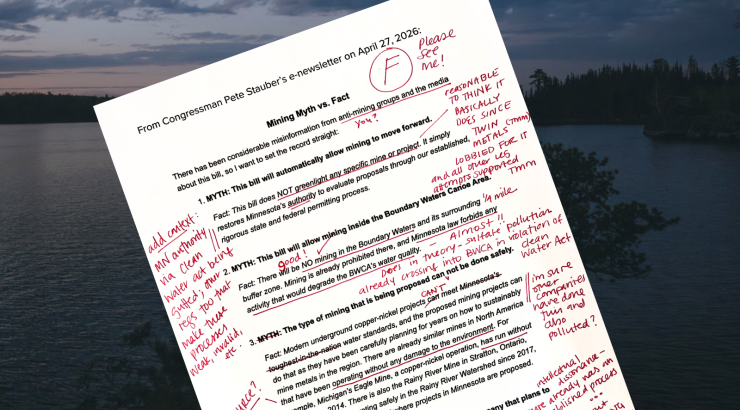 From Congressman Pete Stauber's e-newsletter on April 27, 2026:
F
Please
see
me!
Mining Myth vs. Fact
There has been considerable misinformation from anti-mining groups and the media
you?
about this bill, so I want to set the record straight:
reasonable
to think it
basically
does since
Twin
Metals (TMM)
lobbied for it
and all other leg
attempts supported
TMM
1. MYTH: This bill will automatically allow mining to move forward.
Fact: This bill does NOT greenlight any specific mine or project. It simply
restores Minnesota's authority to evaluate proposals through our established,
rigorous state and federal permitting process.
add context:
MN authority
via clean
water act being
gutted, our
regs too that
make these
processes
weak, invalid,
etc.
2. MYTH: This bill will allow mining inside the Boundary Waters Canoe Area.
good!
Fact: There will be NO mining in the Boundary Waters and its surrounding
1/4 mile
buffer zone. Mining is already prohibited there, and Minnesota law forbids any
- Almost!!
activity that would degrade the BWCA's water quality.
Does in theory - sulfate pollution
already crossing into BWCA in violation of
clean
Water Act
3. MYTH: The type of mining that is being proposed can not be done safely.
can't
Fact: Modern underground copper-nickel projects can meet Minnesota's
toughest-in-the-nation water standards, and the proposed mining projects can
do that as they have been carefully planning for years on how to sustainably
mine metals in the region. There are already similar mines in North America
that have been operating without any damage to the environment. For
example, Michigan's Eagle Mine, a copper-nickel operation, has run without
2014. There is also the Rainy River Mine in Stratton, Ontario,
ating safely in the Rainy River Watershed since 2017,
here projects in Minnesota are proposed.
i'm sure
other
companies
have done
this and
also
polluted?
urce?
intellectual
dissonance
already has an
blished process
...
any that plans to